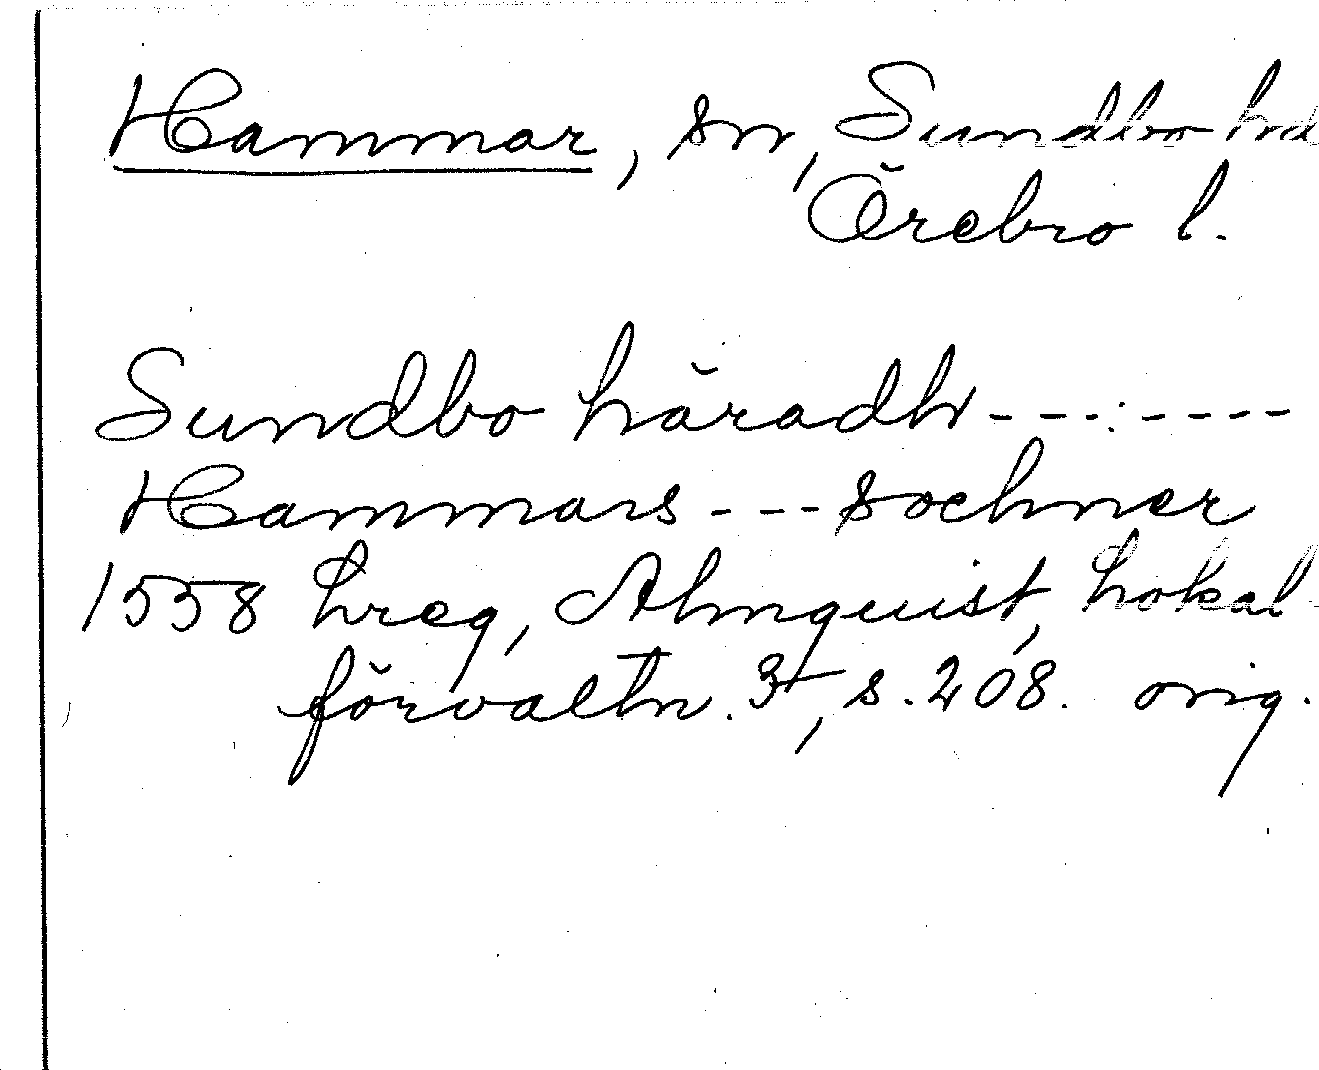 Hammar, sn, Sundbo hd
Örebro l.
Sundbo häradh---:----
Hammars---sochner
1558 hreg, Almquist, Lokal-
förvaltn. 3, s. 208. orig.